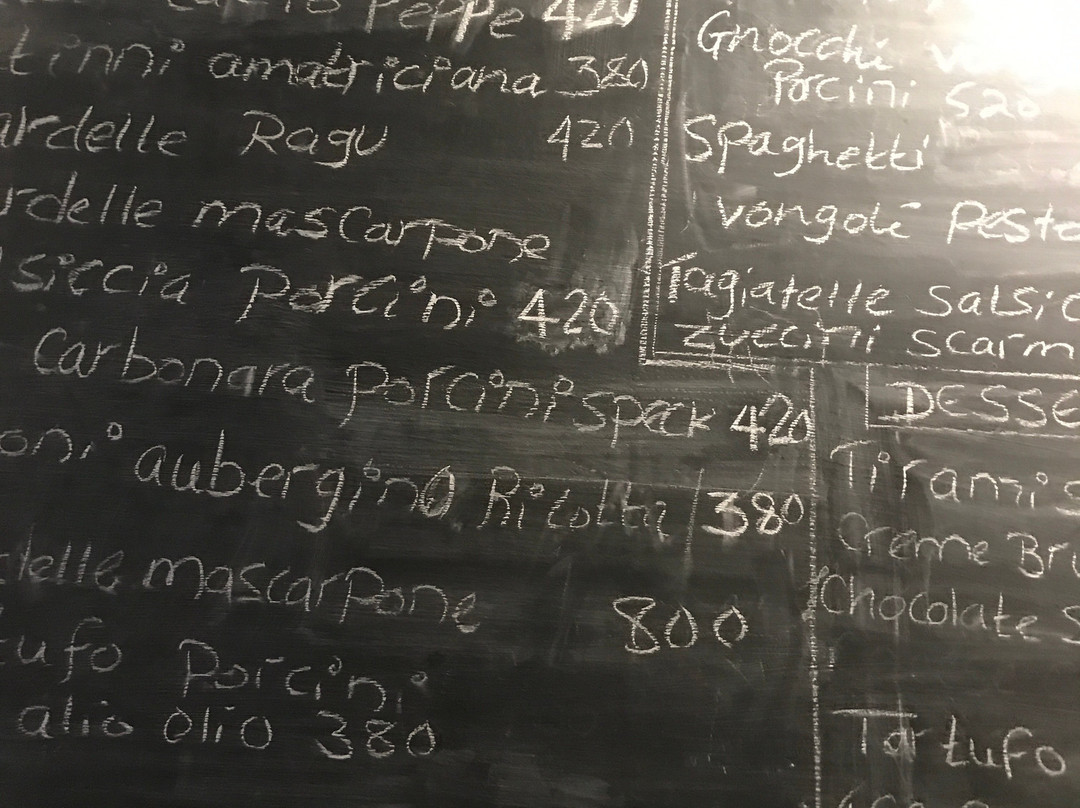 Peppe 420
tinni amatriciana 380
ardelle Ragu 420
rdelle mascarpone
siccia Porcini 420
Carbonara porcini speck 420
oni aubergin Ricotta 380
delle mascarpone 800
tufo Porcini
alio olio 380
Gnocchi
Porcini 520
Spaghetti
vongole Pesto
Tagiatelle Salsic
zuccini Scarm
DESSE
Tiramis
Creme Bru
Chocolate S
Tartufo